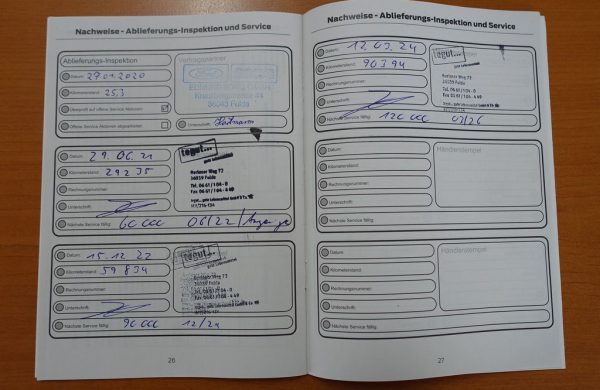 Nachweise - Ablieferungs-Inspektion und Service
Ablieferungs-Inspektion
Vertragspartner
Datum: 27.01.2020
Kilometerstand: 25,3
Überprüft auf offene Service Aktionen
Offene Service Aktionen abgearbeitet
Unterschrift:
Ford
36043 Fulda
Datum: 29.06.21
Kilometerstand: 29235
Rechnungsnummer:
Unterschrift:
Nächste Service fällig: 60 000 06/22/
tegut...
gute Lebensmittel
Weg 72
36039 Fulda
Tel. 06 61 / 104 - 0
Fax 06 61 / 104 - 4 49
Datum: 15.12.22
Kilometerstand: 59 834
Rechnungsnummer:
Unterschrift:
Nächste Service fällig: 90 000 12/24
tegut...
gute Lebensmittel
Weg 72
36039 Fulda
Tel. 06 61 / 104 - 0
Fax 06 61 / 104 - 4 49
26
Nachweise - Ablieferungs-Inspektion und Service
Datum: 12.03.24
Kilometerstand: 90394
Rechnungsnummer:
Unterschrift:
Nächste Service fällig: 120 000 03/26
tegut...
gute Lebensmittel
Weg 72
36039 Fulda
Tel. 06 61 / 104 - 0
Fax 06 61 / 104 - 4 49
Datum:
Händlerstempel
Kilometerstand:
Rechnungsnummer:
Unterschrift:
Nächste Service fällig:
Datum:
Händlerstempel
Kilometerstand:
Rechnungsnummer:
Unterschrift:
Nächste Service fällig:
27